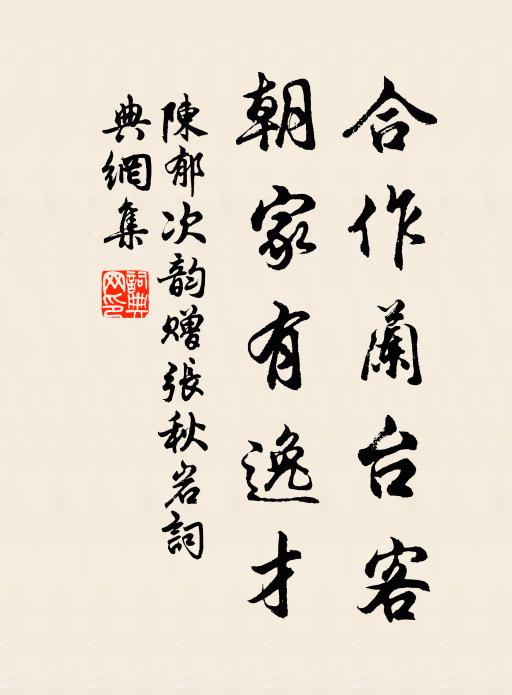 合作蘭台客
朝家有逸才
陳郁次韵赠張秋岩詞
典網集
詞典
网印